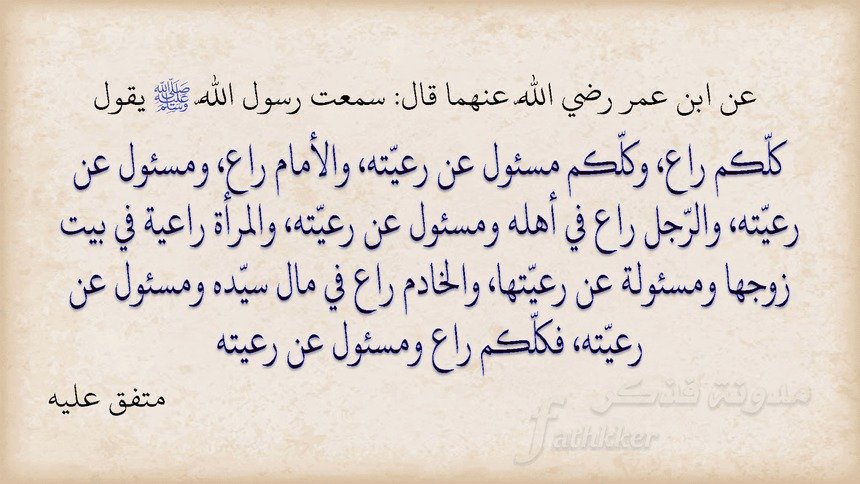 عن ابن عمر رضي الله عنهما قال: سمعت رسول الله ﷺ يقول
كلّكم راع، وكلّكم مسئول عن رعيّته، والأمام راع، ومسئول عن
رعيّته، والرّجل راع في أهله ومسئول عن رعيّته، والمرأة راعية في بيت
زوجها ومسئولة عن رعيّتها، والخادم راع في مال سيّده ومسئول عن
رعيّته، فكلّكم راع ومسئول عن رعيته
متفق عليه
مدونة فذكر
fathkker